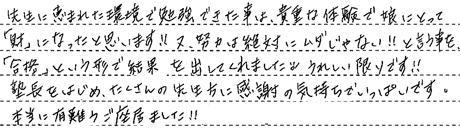 先生に恵まれた環境で勉強できた事は、貴重な体験で娘にとって
「財」になったと思います!!又、努力は絶対にムダじゃない!!と言う事を、
「合格」という形で結果を出してくれました。うれしい限りです!!
塾長をはじめ、たくさんの先生方に感謝の気持ちでいっぱいです。
本当に有難うご座居ました!!